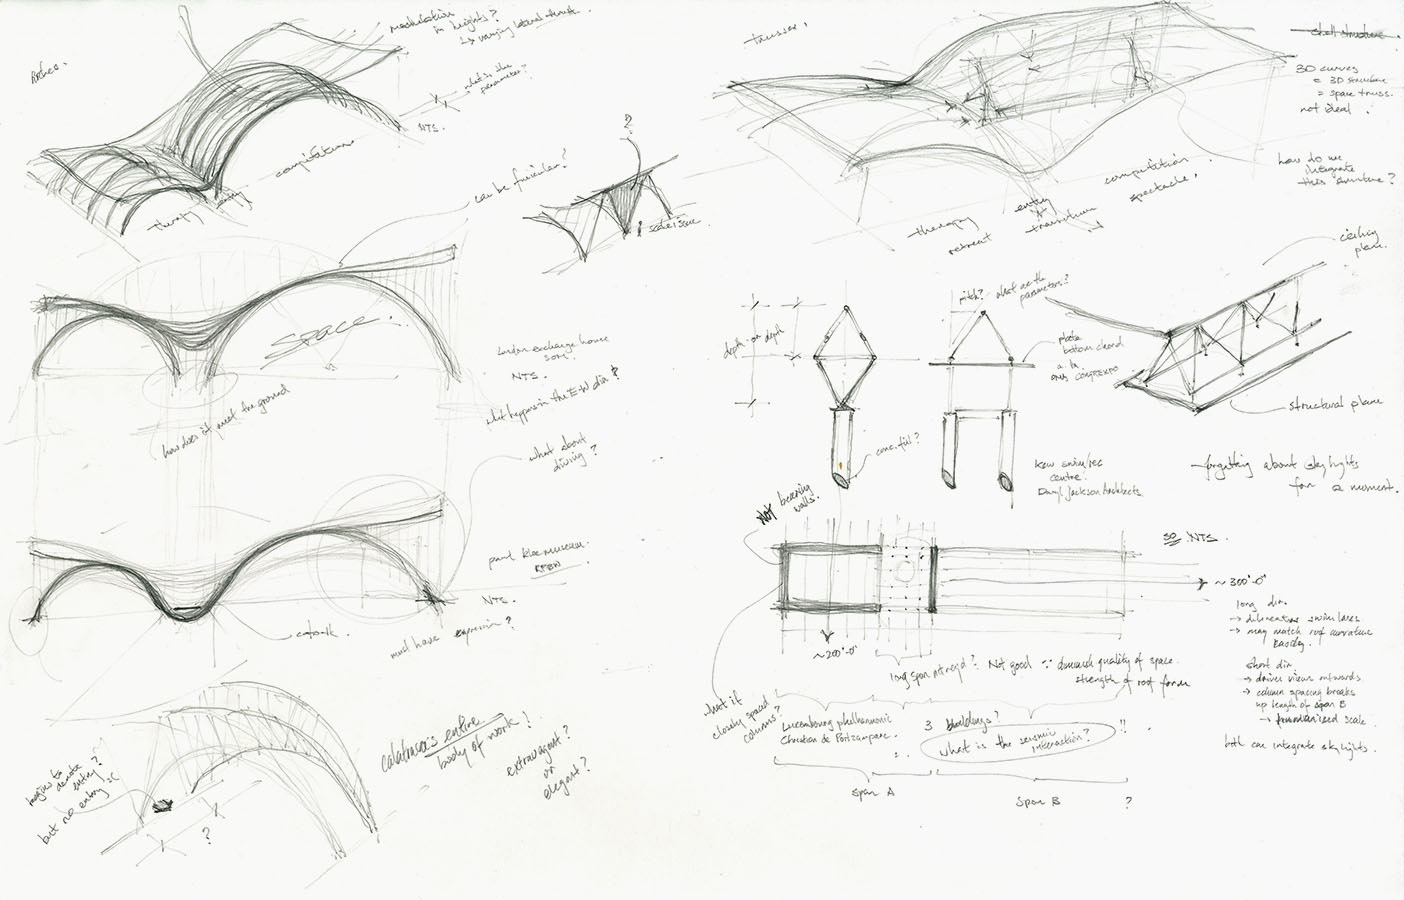 Arches.
modulation
in heights?
↳ varying lateral thrust.
what is the
parameter?
NTS.
competition
therapy
entry
can be funicular?
2
scale issue
Space.
how does it meet the ground
London exchange house
SOM.
NTS.
what happens in the E-W dir?
what about
diving?
paul klee museum
RPBW
NTS.
catwalk.
must have expression?
calatrava's entire
body of work!
extravagant?
or
elegant?
begins to
denote
entry?
but no entry :C
?
trusses.
shell structure.
3D curves
= 3D structure
= space truss.
not ideal.
how do we
integrate
this structure?
competition
spectacle.
entry
transition
therapy
retreat
ceiling
plane.
pitch? what are the
parameters?
depth on depth
plate
bottom chord
conc. fill?
Kew swim/rec
centre.
Daryl Jackson Architects.
structural plane
forgetting about skylights
for a moment.
Not bearing
walls.
SO NTS.
~300'-0"
~200'-0"
long dir.
→ delineates swim lanes
→ may match roof curvature
easily.
short dir
→ drives views outwards
→ column spacing breaks
up length of span B
→ humanized scale.
both can integrate skylights.
long span not req'd? Not good ∵ diminished quality of space.
strength of roof form
what if
closely spaced
columns?
Luxembourg philharmonic
Christian de Portzamparc.
3 buildings?
what is the seismic
interaction?
!!
Span A
Span B
?